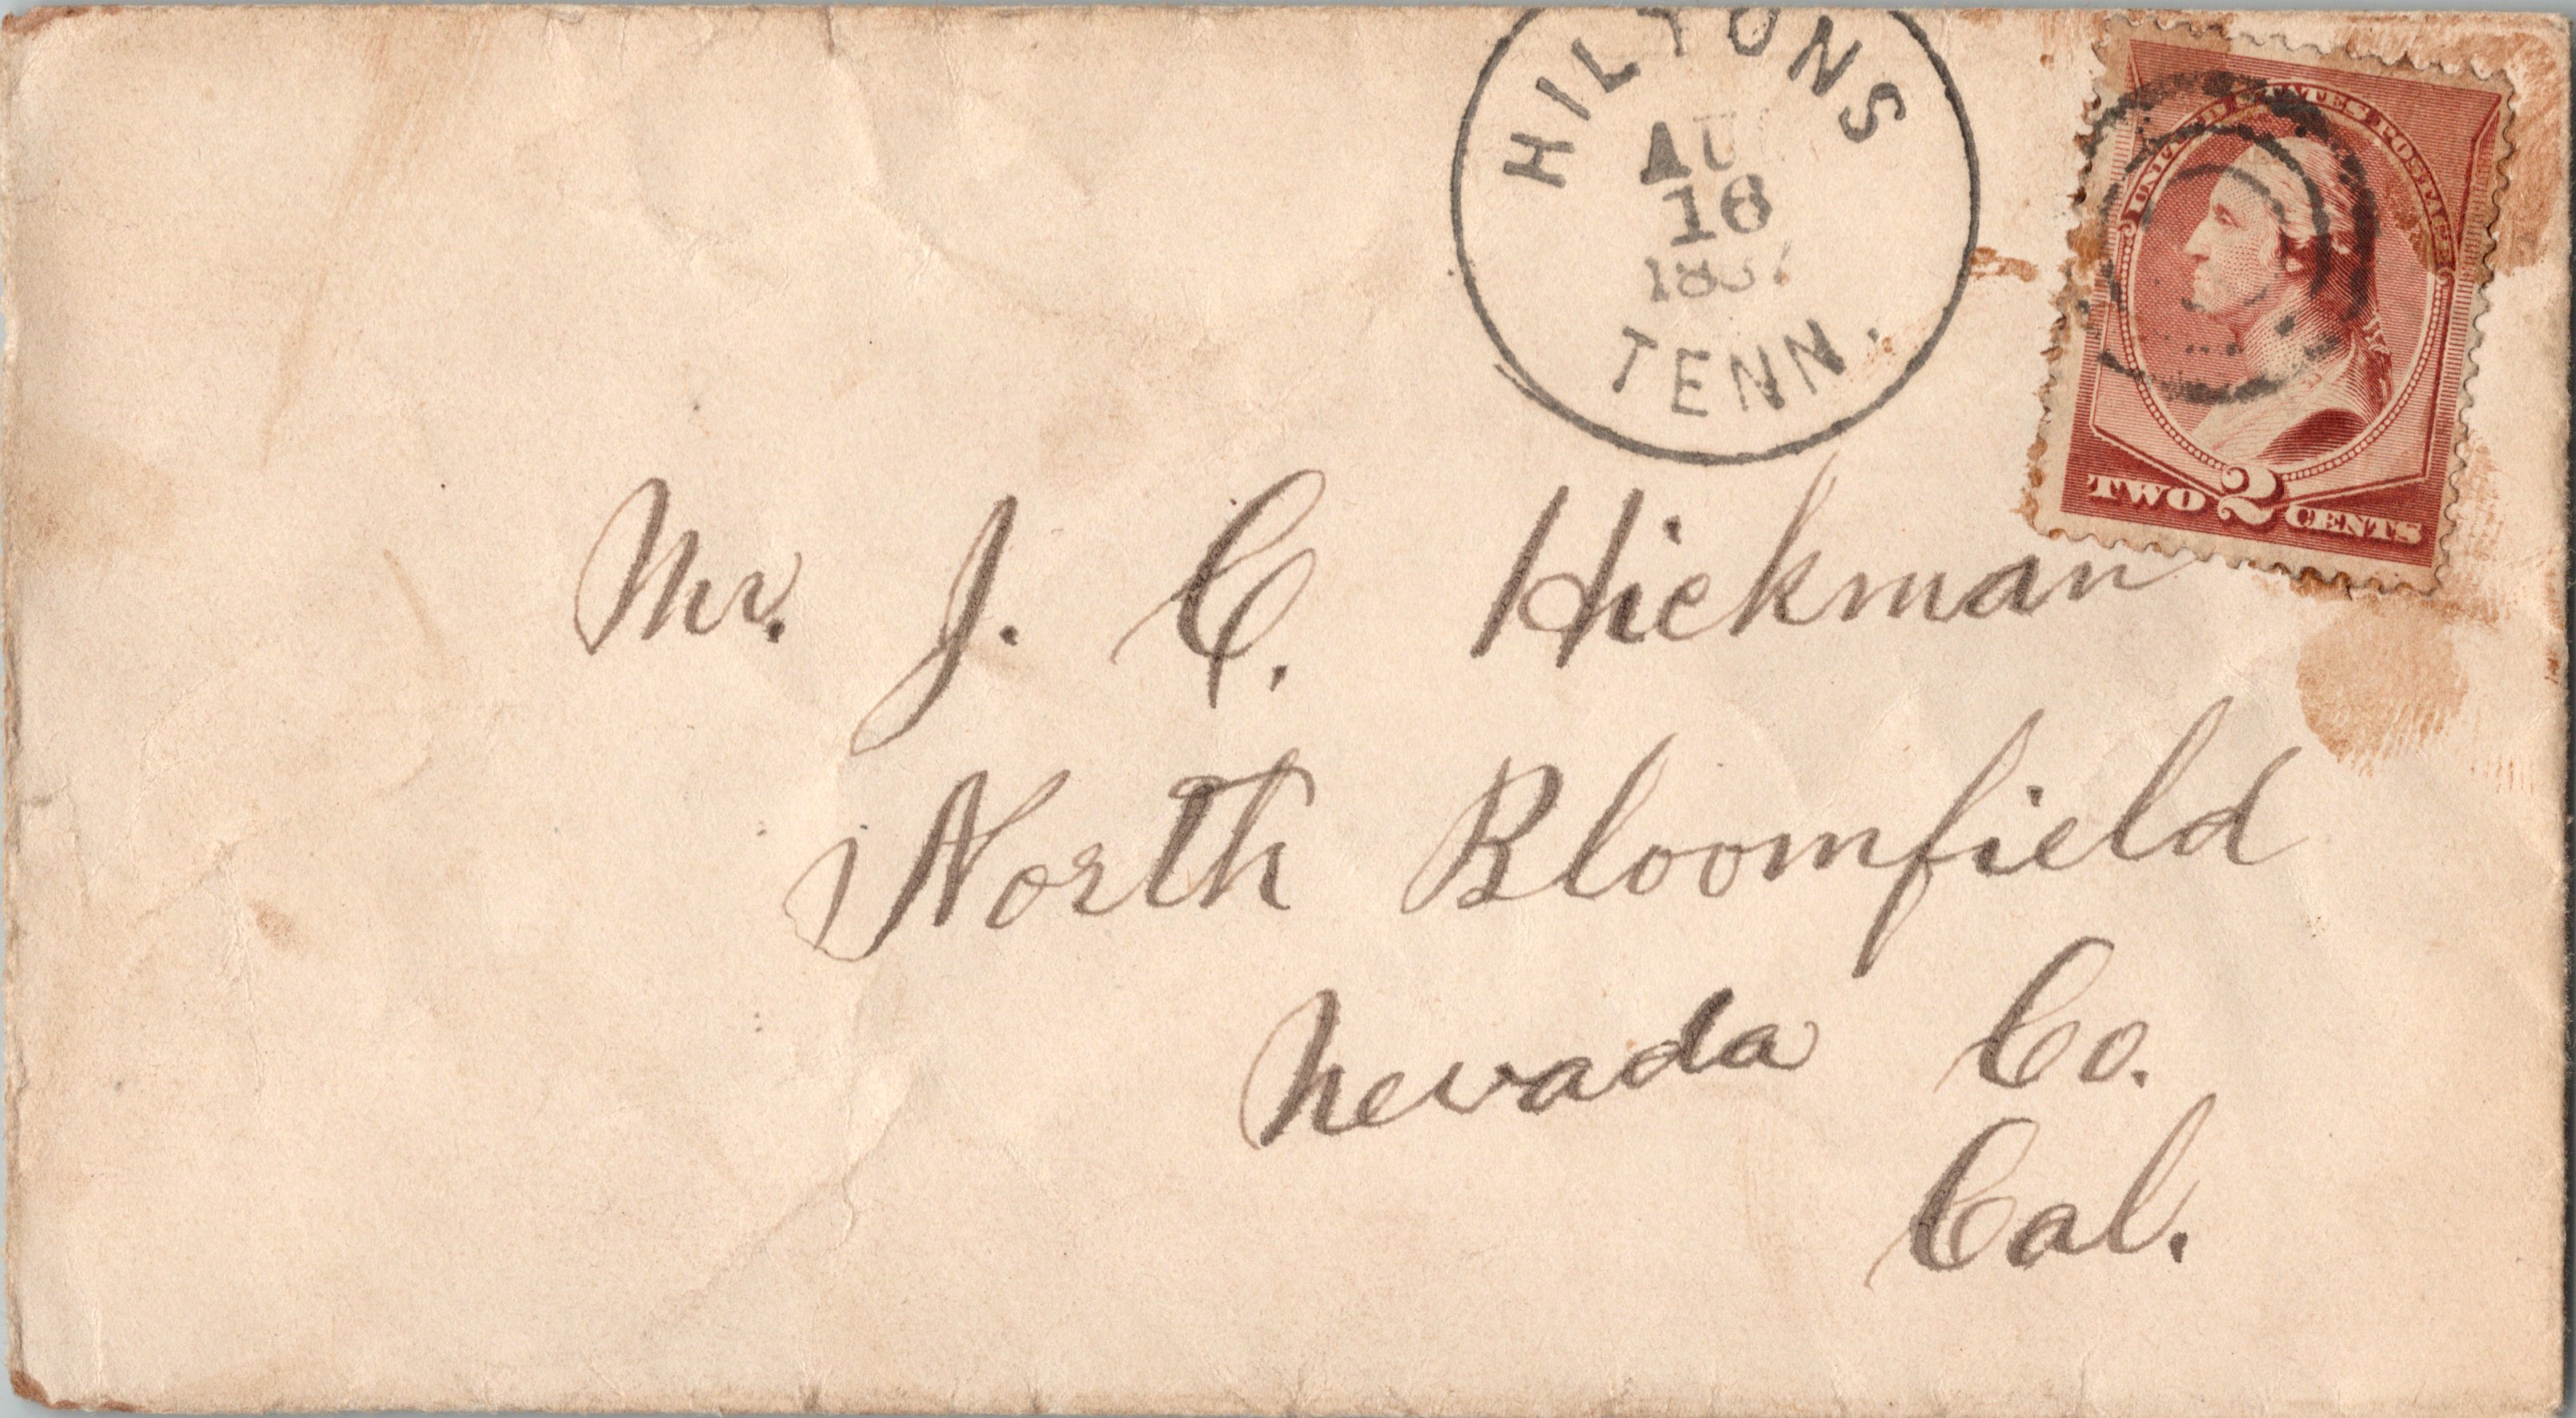 HILTONS
AU
16
TENN.
UNITED STATES POSTAGE
TWO 2 CENTS
Mr. J. C. Hickman
North Bloomfield
Nevada Co.
Cal.